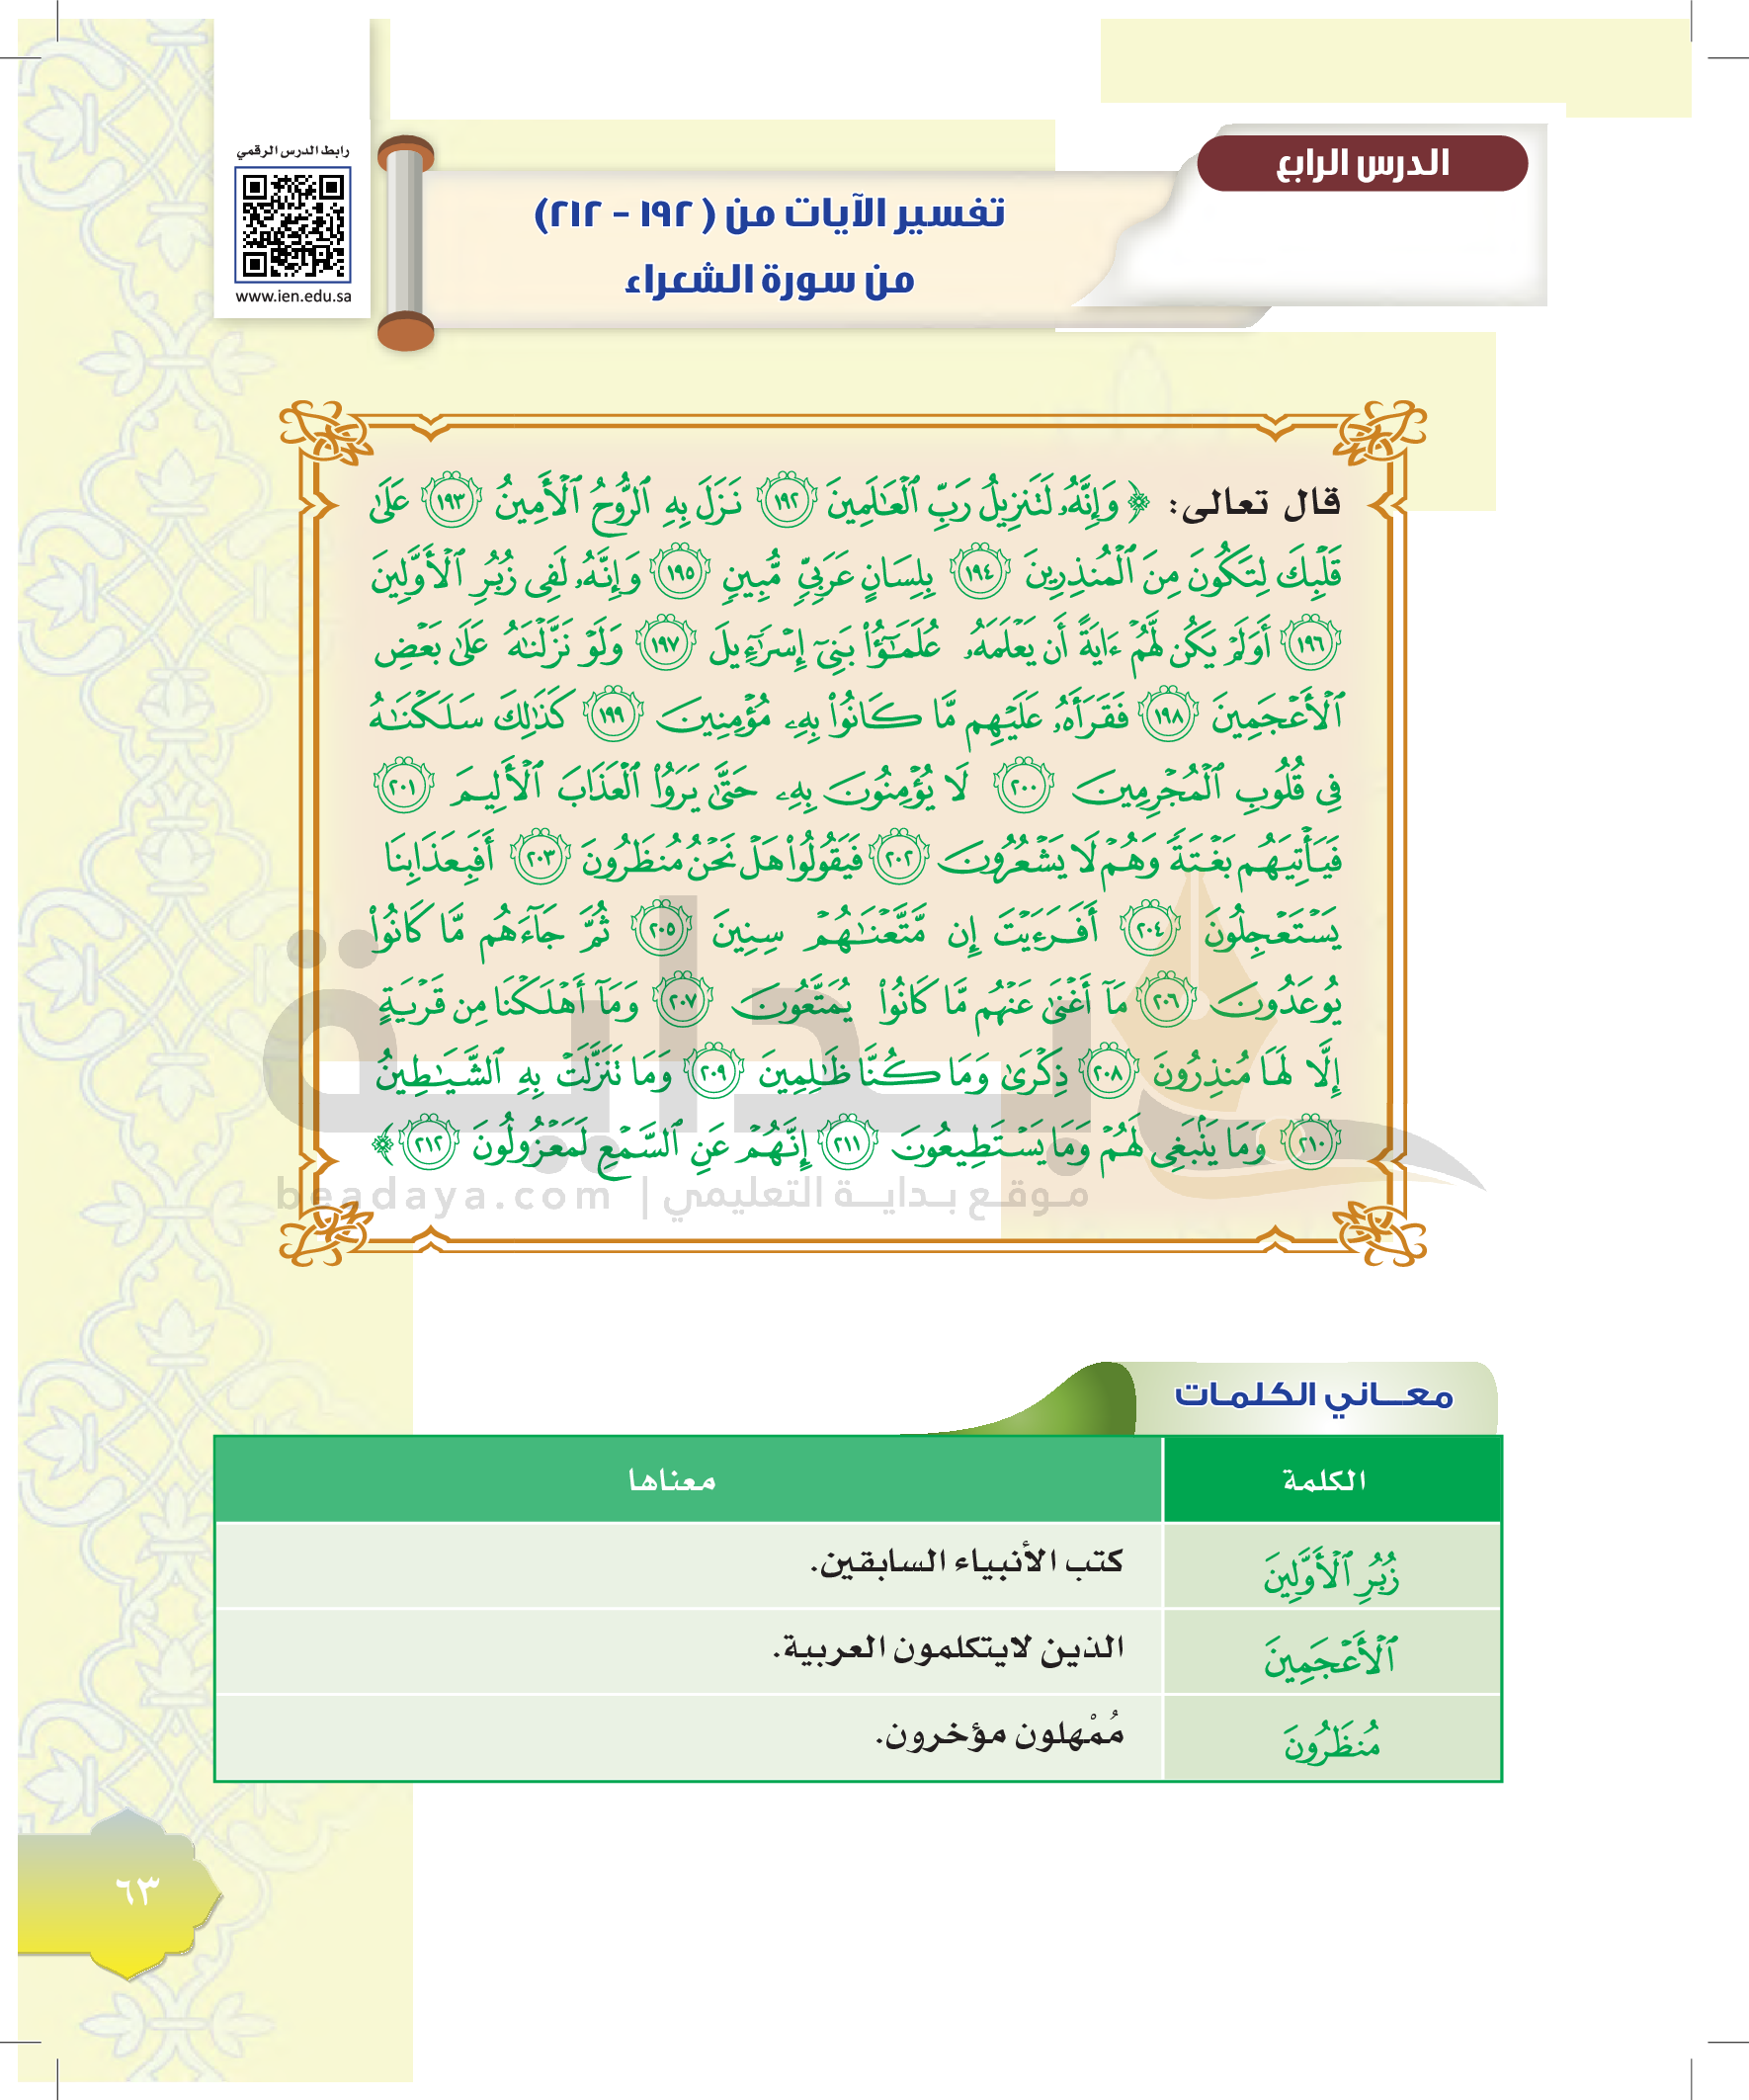 الدرس الرابع
رابط الدرس الرقمي
www.ien.edu.sa
تفسير الآيات من (١٩٢ - ٢١٢)
من سورة الشعراء
قال تعالى: ﴿ وَإِنَّهُۥ لَتَنزِيلُ رَبِّ ٱلۡعَٰلَمِينَ ١٩٢ نَزَلَ بِهِ ٱلرُّوحُ ٱلۡأَمِينُ ١٩٣ عَلَىٰ
قَلۡبِكَ لِتَكُونَ مِنَ ٱلۡمُنذِرِينَ ١٩٤ بِلِسَانٍ عَرَبِيّٖ مُّبِينٖ ١٩٥ وَإِنَّهُۥ لَفِي زُبُرِ ٱلۡأَوَّلِينَ
١٩٦ أَوَلَمۡ يَكُن لَّهُمۡ ءَايَةً أَن يَعۡلَمَهُۥ عُلَمَٰٓؤُاْ بَنِيٓ إِسۡرَٰٓءِيلَ ١٩٧ وَلَوۡ نَزَّلۡنَٰهُ عَلَىٰ بَعۡضِ
ٱلۡأَعۡجَمِينَ ١٩٨ فَقَرَأَهُۥ عَلَيۡهِم مَّا كَانُواْ بِهِۦ مُؤۡمِنِينَ ١٩٩ كَذَٰلِكَ سَلَكۡنَٰهُ
فِي قُلُوبِ ٱلۡمُجۡرِمِينَ ٢٠٠ لَا يُؤۡمِنُونَ بِهِۦ حَتَّىٰ يَرَوُاْ ٱلۡعَذَابَ ٱلۡأَلِيمَ ٢٠١
فَيَأۡتِيَهُم بَغۡتَةٗ وَهُمۡ لَا يَشۡعُرُونَ ٢٠٢ فَيَقُولُواْ هَلۡ نَحۡنُ مُنظَرُونَ ٢٠٣ أَفَبِعَذَابِنَا
يَسۡتَعۡجِلُونَ ٢٠٤ أَفَرَءَيۡتَ إِن مَّتَّعۡنَٰهُمۡ سِنِينَ ٢٠٥ ثُمَّ جَآءَهُم مَّا كَانُواْ
يُوعَدُونَ ٢٠٦ مَآ أَغۡنَىٰ عَنۡهُم مَّا كَانُواْ يُمَتَّعُونَ ٢٠٧ وَمَآ أَهۡلَكۡنَا مِن قَرۡيَةٍ
إِلَّا لَهَا مُنذِرُونَ ٢٠٨ ذِكۡرَىٰ وَمَا كُنَّا ظَٰلِمِينَ ٢٠٩ وَمَا تَنَزَّلَتۡ بِهِ ٱلشَّيَٰطِينُ
٢١٠ وَمَا يَنۢبَغِي لَهُمۡ وَمَا يَسۡتَطِيعُونَ ٢١١ إِنَّهُمۡ عَنِ ٱلسَّمۡعِ لَمَعۡزُولُونَ ٢١٢ ﴾
بداية
موقع بداية التعليمي | beadaya.com
معاني الكلمات
الكلمة معناها
زُبُرِ ٱلۡأَوَّلِينَ كتب الأنبياء السابقين.
ٱلۡأَعۡجَمِينَ الذين لايتكلمون العربية.
مُنظَرُونَ مُمْهلون مؤخرون.
٦٣